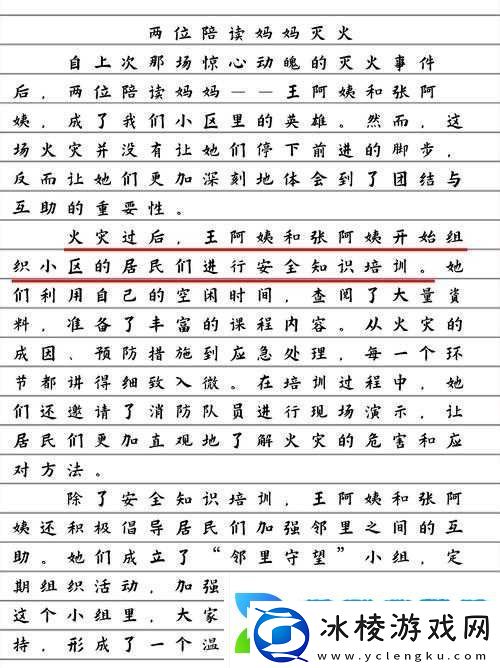 两位陪读妈妈灭火
自上次那场惊心动魄的灭火事件
后，两位陪读妈妈——王阿姨和张阿
姨，成了我们小区里的英雄。然而，这
场火灾并没有让她们停下前进的脚步，
反而让她们更加深刻地体会到了团结与
互助的重要性。
火灾过后，王阿姨和张阿姨开始组
织小区的居民们进行安全知识培训。她
们利用自己的空闲时间，查阅了大量资
料，准备了丰富的课程内容。从火灾的
成因、预防措施到应急处理，每一个环
节都讲得细致入微。在培训过程中，她
们还邀请了消防队员进行现场演示，让
居民们更加直观地了解火灾的危害和应
对方法。
除了安全知识培训，王阿姨和张阿
姨还积极倡导居民们加强邻里之间的互
助。她们成立了“邻里守望”小组，定
期组织活动，加强
这个小组里，大家
持，形成了一个温
冰棱游戏网
www.yclengku.com